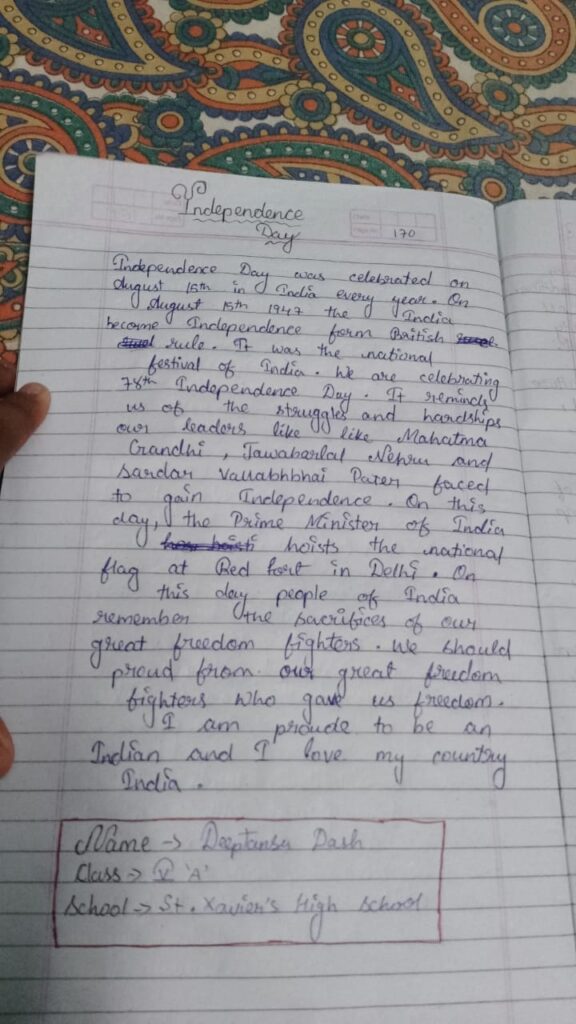 Independence
Day
170
Independence Day was celebrated on
August 15th in India every year. On
August 15th 1947 the India
become Independence form British
rule. It was the national
festival of India. We are celebrating
78th Independence Day. It reminds
us of the struggles and hardships
our leaders like like Mahatma
Gandhi, Jawaharlal Nehru and
Sardar Vallabhbhai Patel faced
to gain Independence. On this
day, the Prime Minister of India
hoists the national
flag at Red fort in Delhi. On
this day people of India
remember the sacrifices of our
great freedom fighters. We should
proud from our great freedom
fighters who gave us freedom.
I am proude to be an
Indian and I love my country
India.
Name → Deeptansu Dash
Class → V 'A'
School → St. Xavier's High School